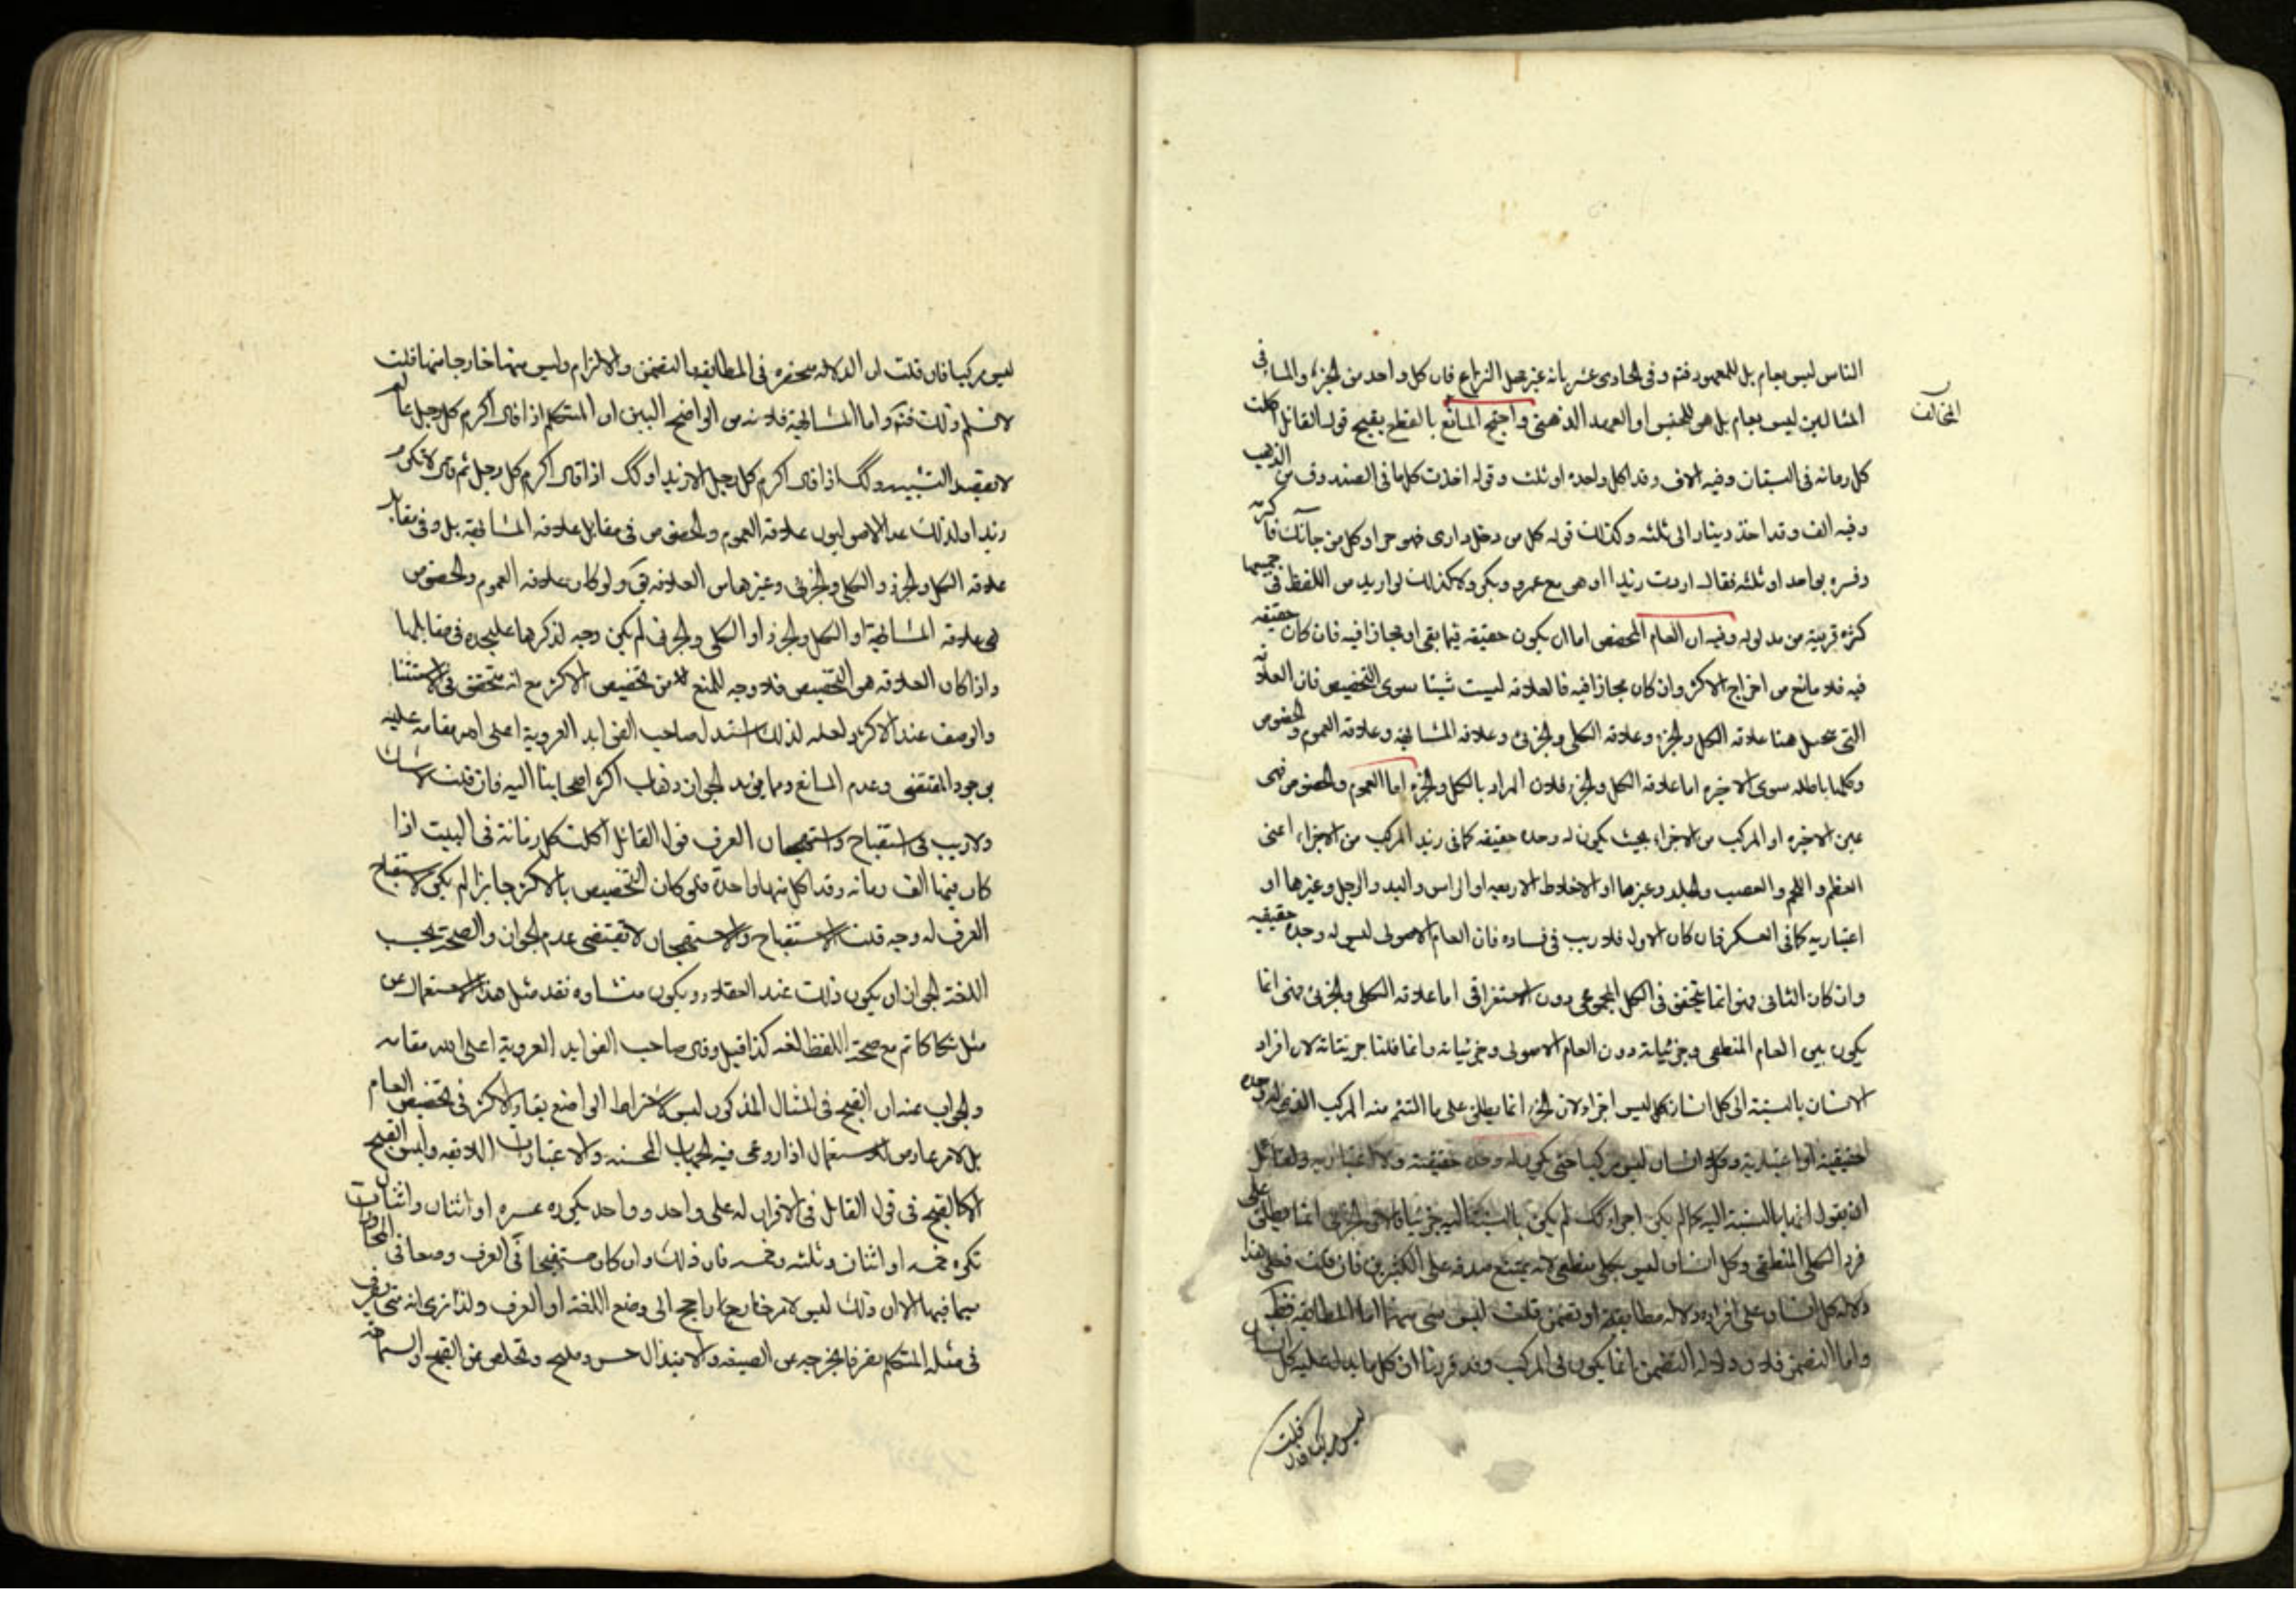 الناس ليس بعام بل للمعهود فتم وفى الحادى عشر بانه غير محل النزاع فان كل واحد من الجزء والمساء فى
المثالين ليس بعام بل هى للجنس او العهد الذهنى واحتج المانع بالقطع بقبح قول القائل اكلت
المخالف
كل رمانه فى البستان وفيه الاف وقد اكل واحده او ثلث وقوله اخذت كلما فى الصندوق من الذهب
وفيه الف وقد اخذ دينارا الى ثلثه وكذلك قوله كل من دخل دارى فهو حر او كل من جاءك فاكرمه
وفسره بواحد او ثلثه فقال اردت زيدا او هو مع عمرو وبكر ولا كذلك لو اريد من اللفظ فى جميعها
كثره قريبة من مدلوله وفيه ان العام المخصص اما ان يكون حقيقه فيما بقى او مجازا فيه فان كان حقيقه
فيه فلا مانع من اخراج الاكثر وان كان مجازا فيه فالعلاقه ليست شيئا سوى التخصيص فان العلاقه
التى تحتمل هنا علاقه الكل والجزء وعلاقه الكلى والجزئى وعلاقه المشابهة وعلاقه العموم والخصوص
وكلها باطله سوى الاخيره اما علاقه الكل والجزء فلان المراد بالكل والجزء اما العموم والخصوص فهى
عين الاخيره او المركب من الاجزاء بحيث يكون له وحده حقيقه كما فى زيد المركب من الاجزاء اعنى
العظم واللحم والعصب والجلد وغيرها او الاخلاط الاربعه او الراس واليد والرجل وغيرها او
اعتباريه كما فى العسكر فان كان الاول فلا ريب فى فساده فان العام الاصولى ليس له وحده حقيقيه
وان كان الثانى فهو انما يتحقق فى الكل المجموعى دون الاستغراقى اما علاقه الكلى والجزئى فهى انما
يكون بين العام المنطقى وجزئياته دون العام الاصولى وجزئياته وانما قلنا جزئياته لان افراد
الانسان بالنسبة الى كل انسان كل ليس اجزاء لان الجزء انما يطلق على ما التئم منه المركب الذى له وحده
حقيقية او اعتبارية وكل انسان ليس مركبا حتى يكون له وحده حقيقية ولا اعتباريه ولقائل
ان يقول انها بالنسبة اليه كما لم يكن اجزاء كك لم يكن بالنسبة اليه جزئيات لان الجزئى انما يطلق على
فرد الكلى المنطقى وكل انسان ليس بكلى منطقى لانه يمتنع صدقه على الكثيرين فان قلت فعلى هذا
دلاله كل انسان على افراده دلاله مطابقه او تضمن قلت ليس شى منهما اما المطابقه فظ
واما التضمن فلان دلاله التضمن انما يكون فى المركب وقد قررنا ان كل ما يدل عليه كل انسان
ليس مركبا فان قلت
ليس مركبا فان قلت ان الدلاله منحصره فى المطابقه والتضمن والالتزام وليس شى منها خارجا منها قلت
لا نسلم ذلك فتم واما المشابهة فلانه من الواضح البين ان المتكلم اذا قال اكرم كل رجل عالم
لا يقصد التشبيه وكك اذا قال اكرم كل رجل الا زيدا وكك اذا قال اكرم كل رجل ثم قال لا تكرم
زيدا ولذلك عد الاصوليون علاقه العموم والخصوص فى مقابل علاقه المشابهة بل وفى مقابل
علاقه الكل والجزء والكلى والجزئى وغيرها من العلاقه ولو كان علاقه العموم والخصوص
هى علاقه المشابهة او الكل والجزء او الكلى والجزئى لم يكن وجه لذكرها عليحده فى مقابلها
واذا كان العلاقه هى التخصيص فلا وجه للمنع من تخصيص الاكثر مع انه متحقق فى الاستثنا
والوصف عند الاكثر ولعله لذلك استدل صاحب الفوايد الغروية اعلى الله مقامه عليه
بوجود المقتضى وعدم المانع ومما يؤيد الجواز ذهاب اكثر اصحابنا اليه فان قلت لا شك
ولا ريب فى استقباح واستهجان العرف قول القائل اكلت كل رمانة فى البيت اذا
كان فيها الف رمانه وقد اكل منها واحدة فلو كان التخصيص بالاكثر جايزا لم يكن لاستقباح
العرف له وجه قلت الاستقباح والاستهجان لا يقتضى عدم الجواز والصحة بحسب
اللغة لجواز ان يكون ذلك عند العقلاء ويكون منشاوه نقد مثل هذا الاستعمال عن
مثل تكاكاتم مع صحة اللفظ لغه كذا قيل وقال صاحب الفوايد الغروية اعلى الله مقامه
والجواب عنه ان القبح فى المثال المذكور ليس لاشتراط الواضع بقاء الاكثر فى تخصيص العام
بل لامر عارض للاستعمال اذا روعى فيه الجهات المحسنه والاعتبارات اللايقه وليس القبح
الا كالقبح فى قول القائل فى الاقرار له على واحد وواحد يكرره عشره او اثنان واثنان
يكرره خمسه او اثنان وثلثه وخمسه فان ذلك وان كان مستقبحا فى العرف وصعا فى المحاورات
سيما فيها الا ان ذلك ليس لامر خارج راجع الى وضع اللغة او العرف ولذا نرى انه متى تصرف
فى مثله المتكلم تصرفا يخرجه عن الصيغه والابتذال حسن وملح وتخلص من القبح والسماجه